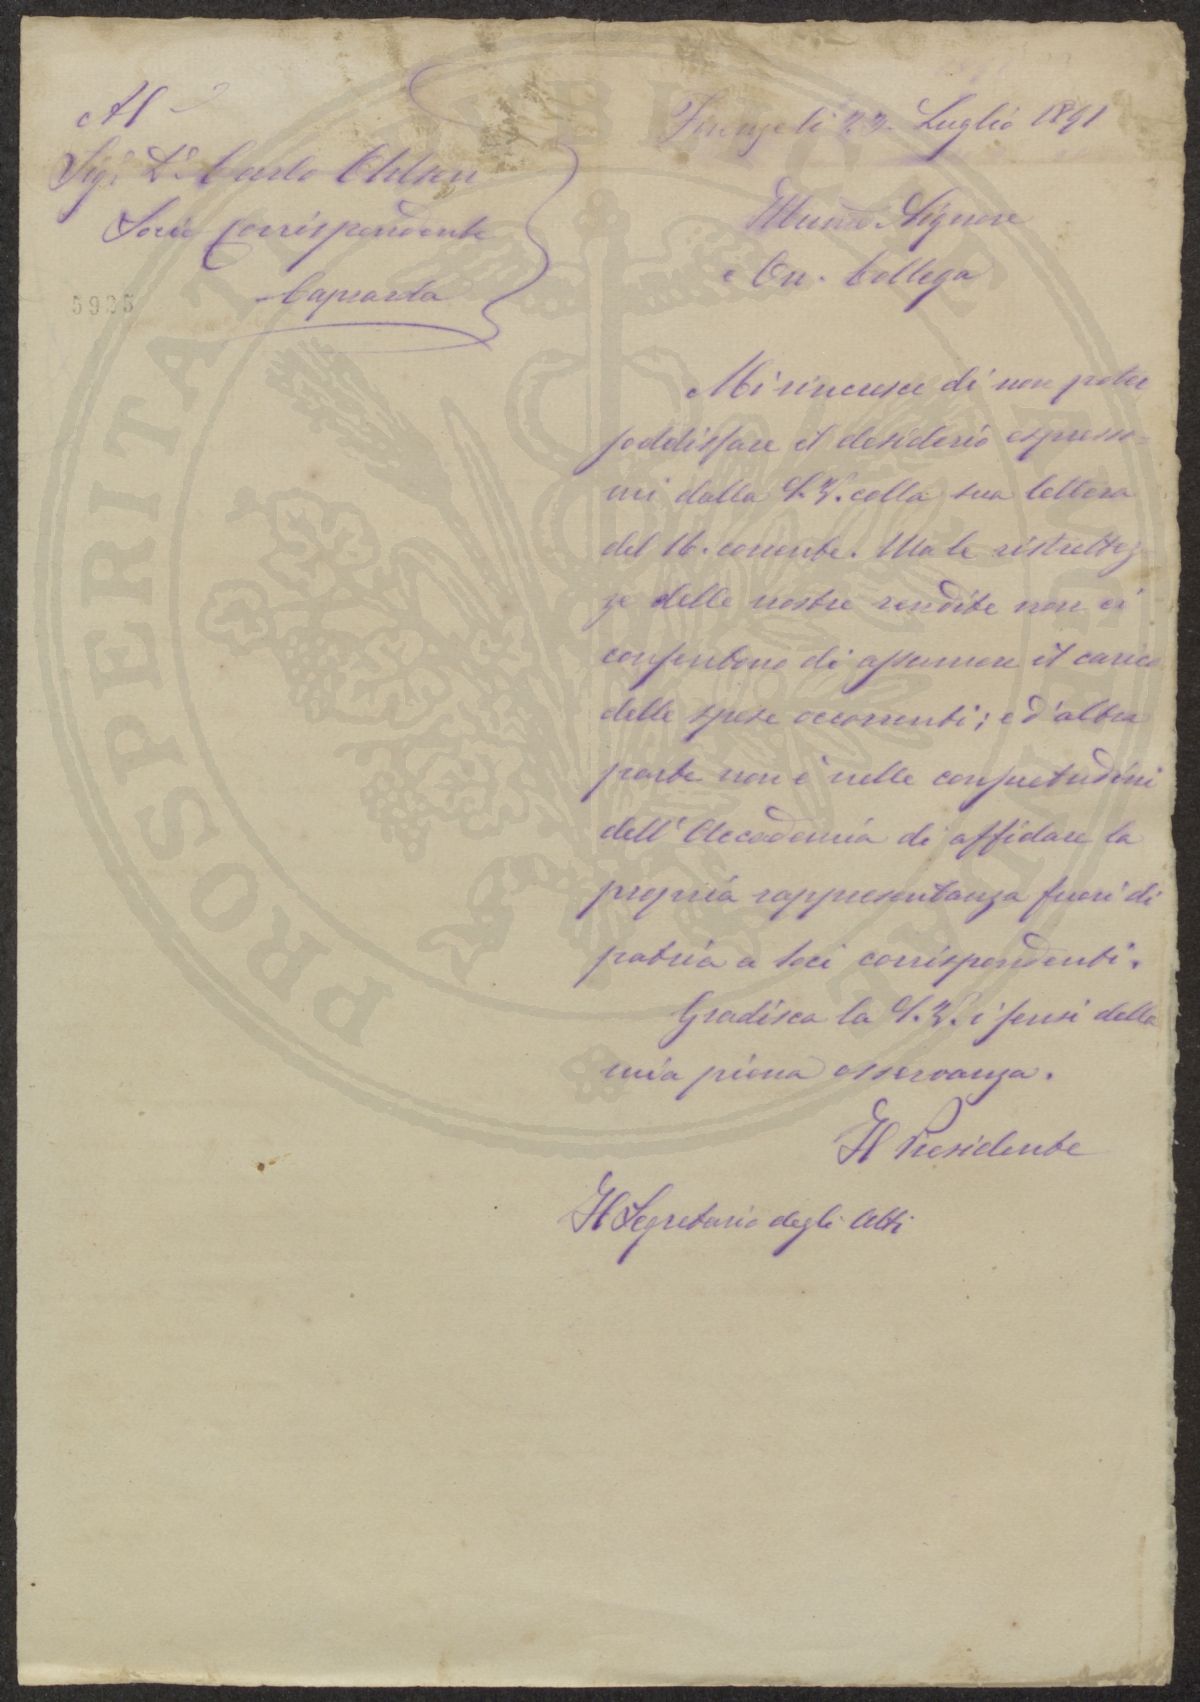 Al
Sigr Dr Carlo Ohlsen
Socio Corrispondente
Caprarola
5925
Firenze li 23. Luglio 1891
Illmo Signore
On. Collega
Mi rincresce di non poter
sodisfare il desiderio espresso=
mi dalla S.V. colla sua lettera
del 16. corrente. Ma le ristrettez
ze delle nostre rendite non ci
consentono di assumere il carico
delle spese occorrenti; e d'altra
parte non è nelle consuetudini
dell'Accademia di affidare la
propria rappresentanza fuori di
patria a soci corrispondenti.
Gradisca la S.V. i sensi della
mia piena osservanza.
Il Presidente
Il Segretario degli Atti
PROSPERITATI PVBLICAE AVGENDAE